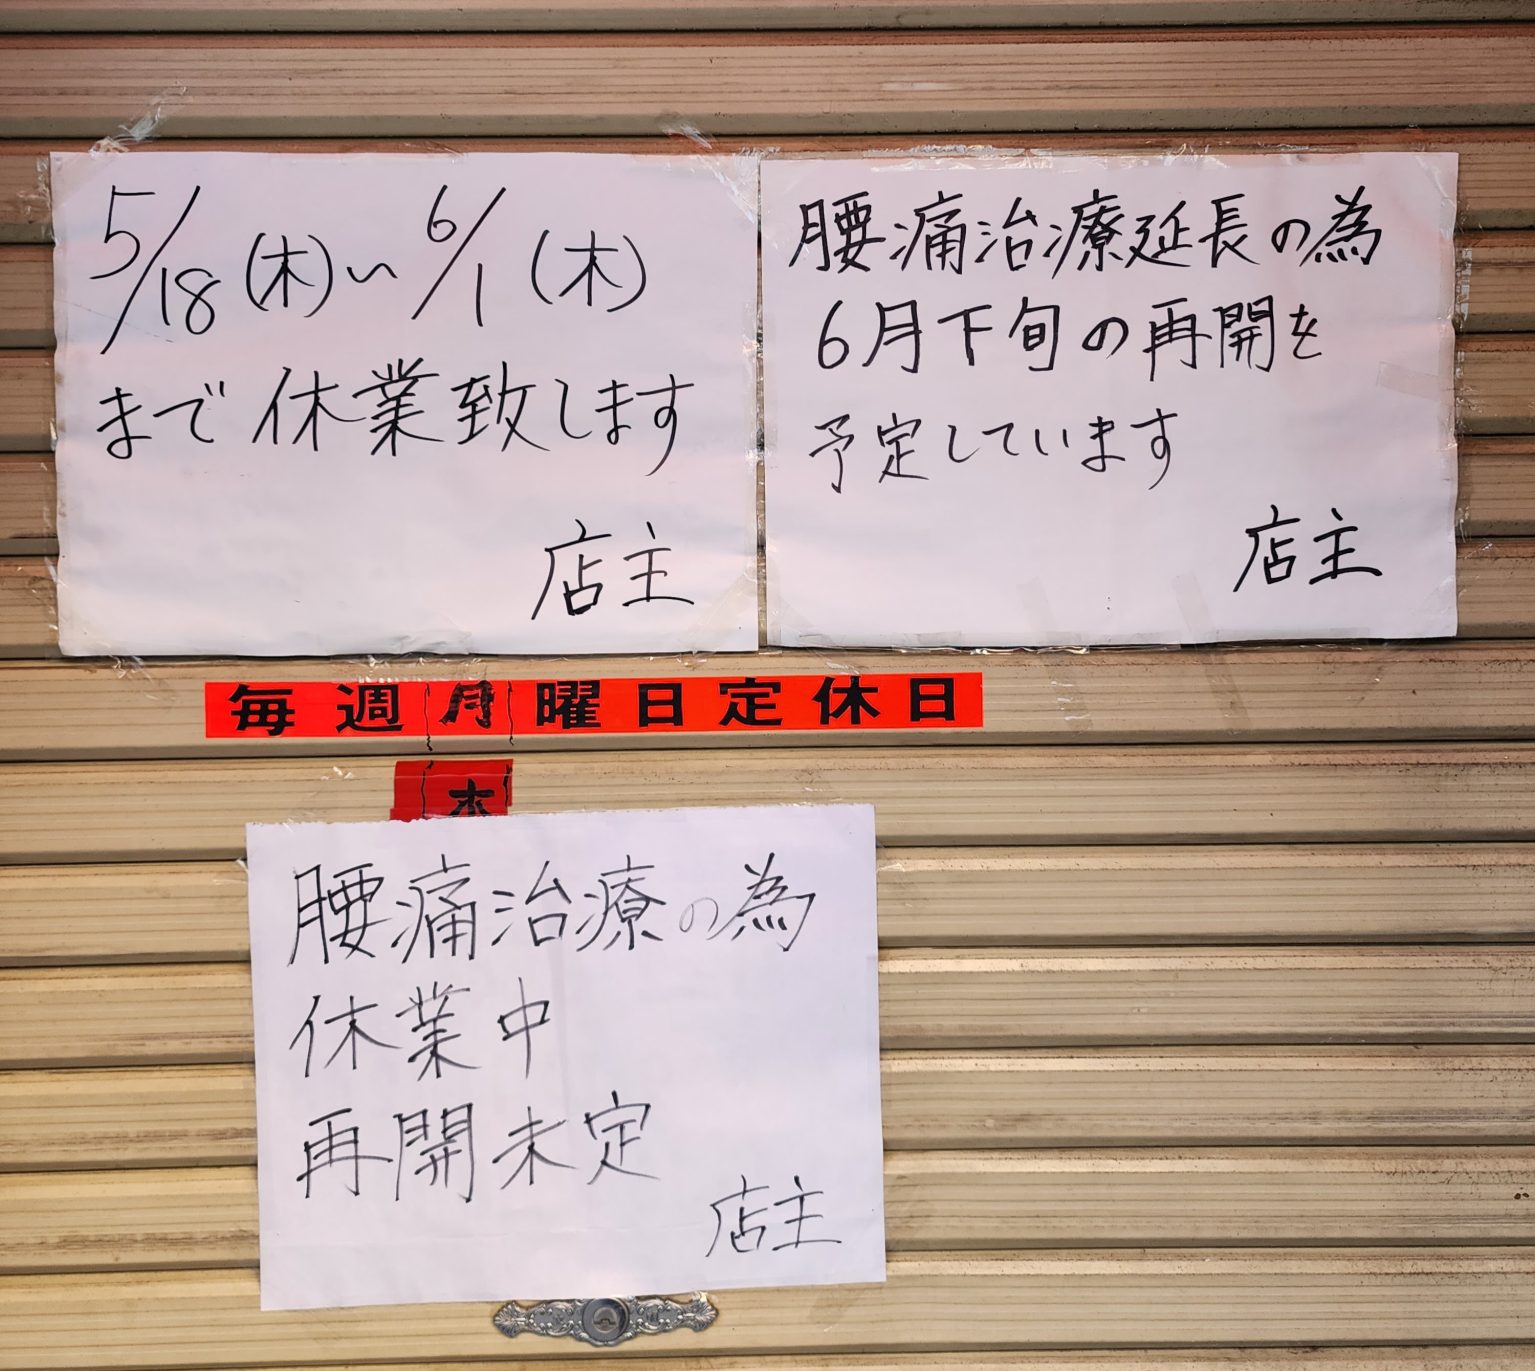 5/18(木)〜6/1(木)
まで休業致します
店主
腰痛治療延長の為
6月下旬の再開を
予定しています
店主
毎週月曜日定休日
木
腰痛治療の為
休業中
再開未定
店主